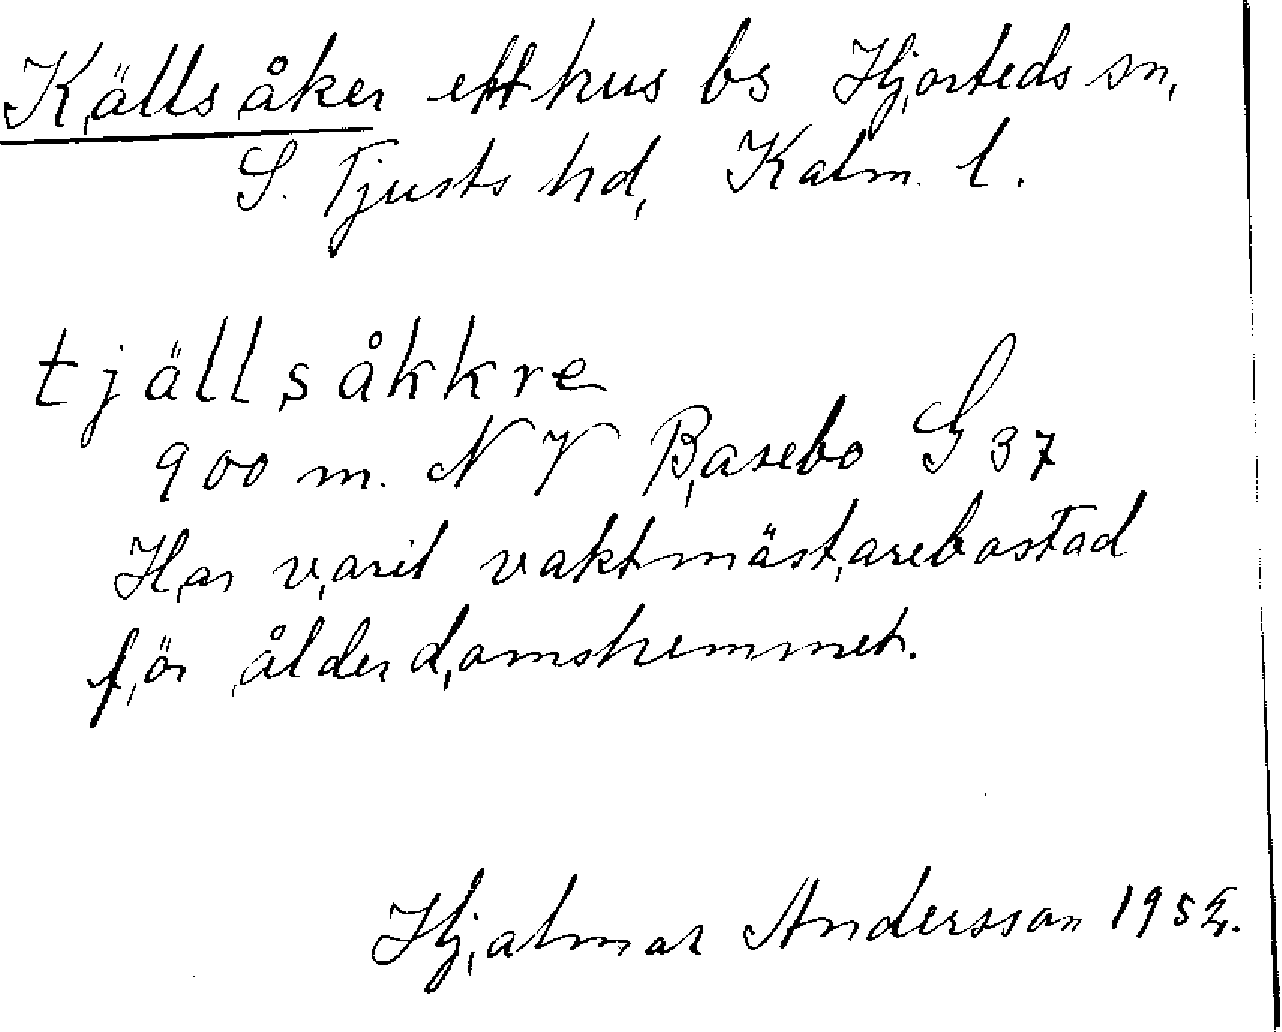 Källsåker ett hus bs Hjorteds sn,
S. Tjusts hd, Kalm. l.
tjällsåkkre
900 m. NV Basebo G 37
Har varit vaktmästarebostad
för ålderdomshemmet.
Hjalmar Andersson 1952.